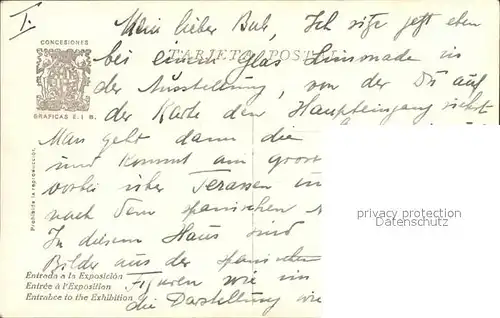 I.
Mein lieber Bub, Ich sitze jetzt eben
CONCESIONES
TARJETA POSTAL
bei einem Glas Limonade in
der Ausstellung, von der Du auf
der Karte den Haupteingang siehst
GRAFICAS E. I B.
Man geht dann die
und kommt am
vorbei über Terassen
nach dem spanischen
Prohibida la reproducción
privacy protection
Datenschutz
In diesem Haus sind
Bilder aus der spanischen
Entrada a la Exposición
Figuren wie im
Entrée à l'Exposition
Entrance to the Exhibition
die Darstellung wie